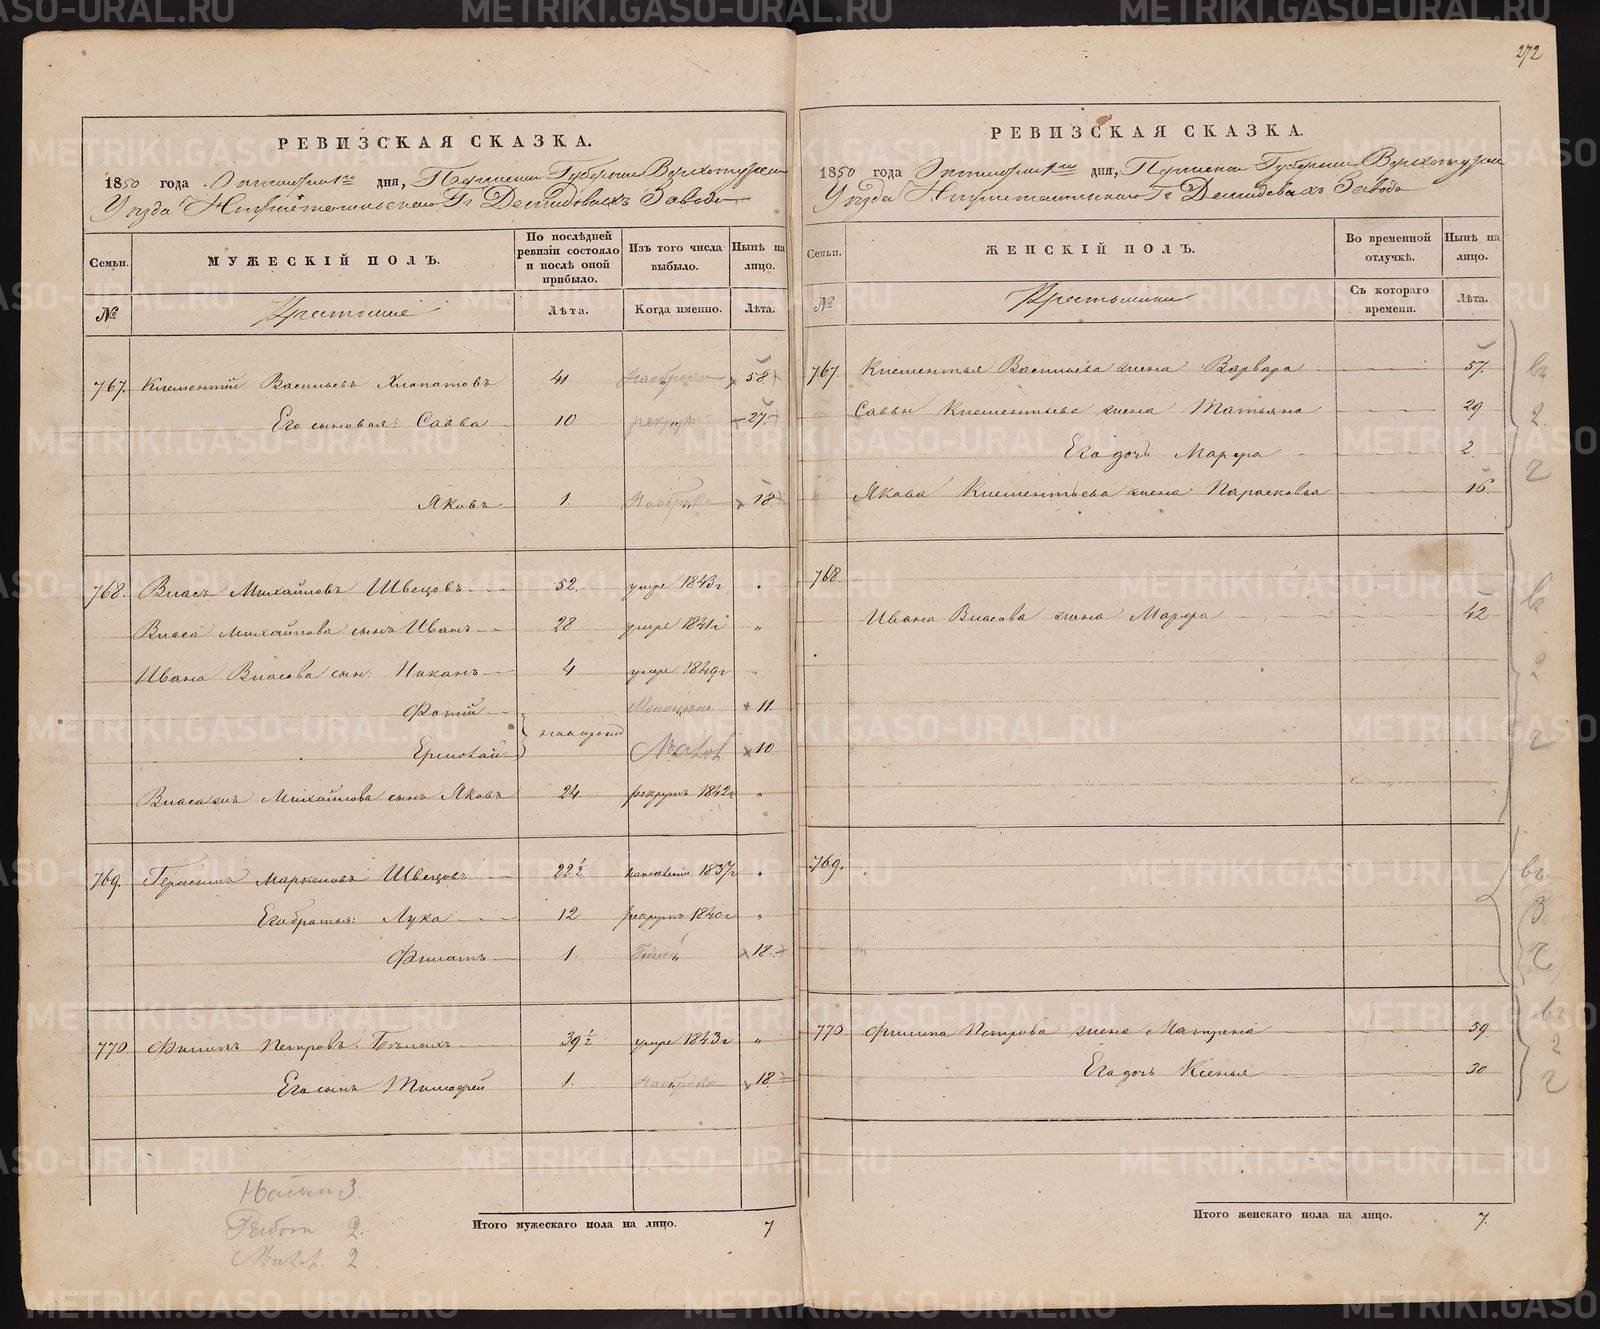 272
РЕВИЗСКАЯ СКАЗКА.
1850 года Октября 1го дня, Пермской Губернии Верхотурскаго
Уѣзда Нижнетагильскаго Гг Демидовыхъ Завода
Семьи.
МУЖЕСКІЙ ПОЛЪ.
По послѣдней ревизіи состояло и послѣ оной прибыло.
Изъ того числа выбыло.
Нынѣ на лицо.
№
Крестьяне
Лѣта.
Когда именно.
Лѣта.
767. Клементий Васильевъ Хлопатовъ 41 58
Его сыновья: Савва 10 рекрутъ 27
Яковъ 1. 18
768. Власъ Михайловъ Швецовъ 52. умре 1843г "
Власа Михайлова сынъ Иванъ 28 умре 1841г "
Ивана Власова сын: Иванъ 4 умре 1849г "
Фотий 11.
Ермолай 10
Власажъ Михайлова сынъ Яковъ 24. рекрутъ 1842г "
769. Герасимъ Маркеловъ Швецовъ 22½ 1837г "
Его братья: Лука 12 рекрутъ 1840г "
Филатъ 1. 18.
770. Филипъ Петровъ Бѣлыхъ 39½ умре 1843г "
Его сынъ Тимофей 1. 18
3.
2.
2
Итого мужескаго пола на лицо. 7
РЕВИЗСКАЯ СКАЗКА.
1850 года Октября 1го дня, Пермской Губернии Верхотурскаго
Уѣзда Нижнетагильскаго Гг Демидовыхъ Завода
Семьи.
ЖЕНСКІЙ ПОЛЪ.
Во временной отлучкѣ.
Нынѣ на лицо.
№
Крестьянки
Съ котораго времени.
Лѣта.
767. Клементья Васильева жена Варвара 57.
Саввы Клементьева жена Татьяна 29
Его дочь Марфа 2.
Якова Клементьева жена Парасковья 16.
768
Ивана Власова жена Марфа 42
769.
770. Филипа Петрова жена Матрена 59.
Его дочь Ксенья 30
Итого женскаго пола на лицо. 7.
METRIKI.GASO-URAL.RU